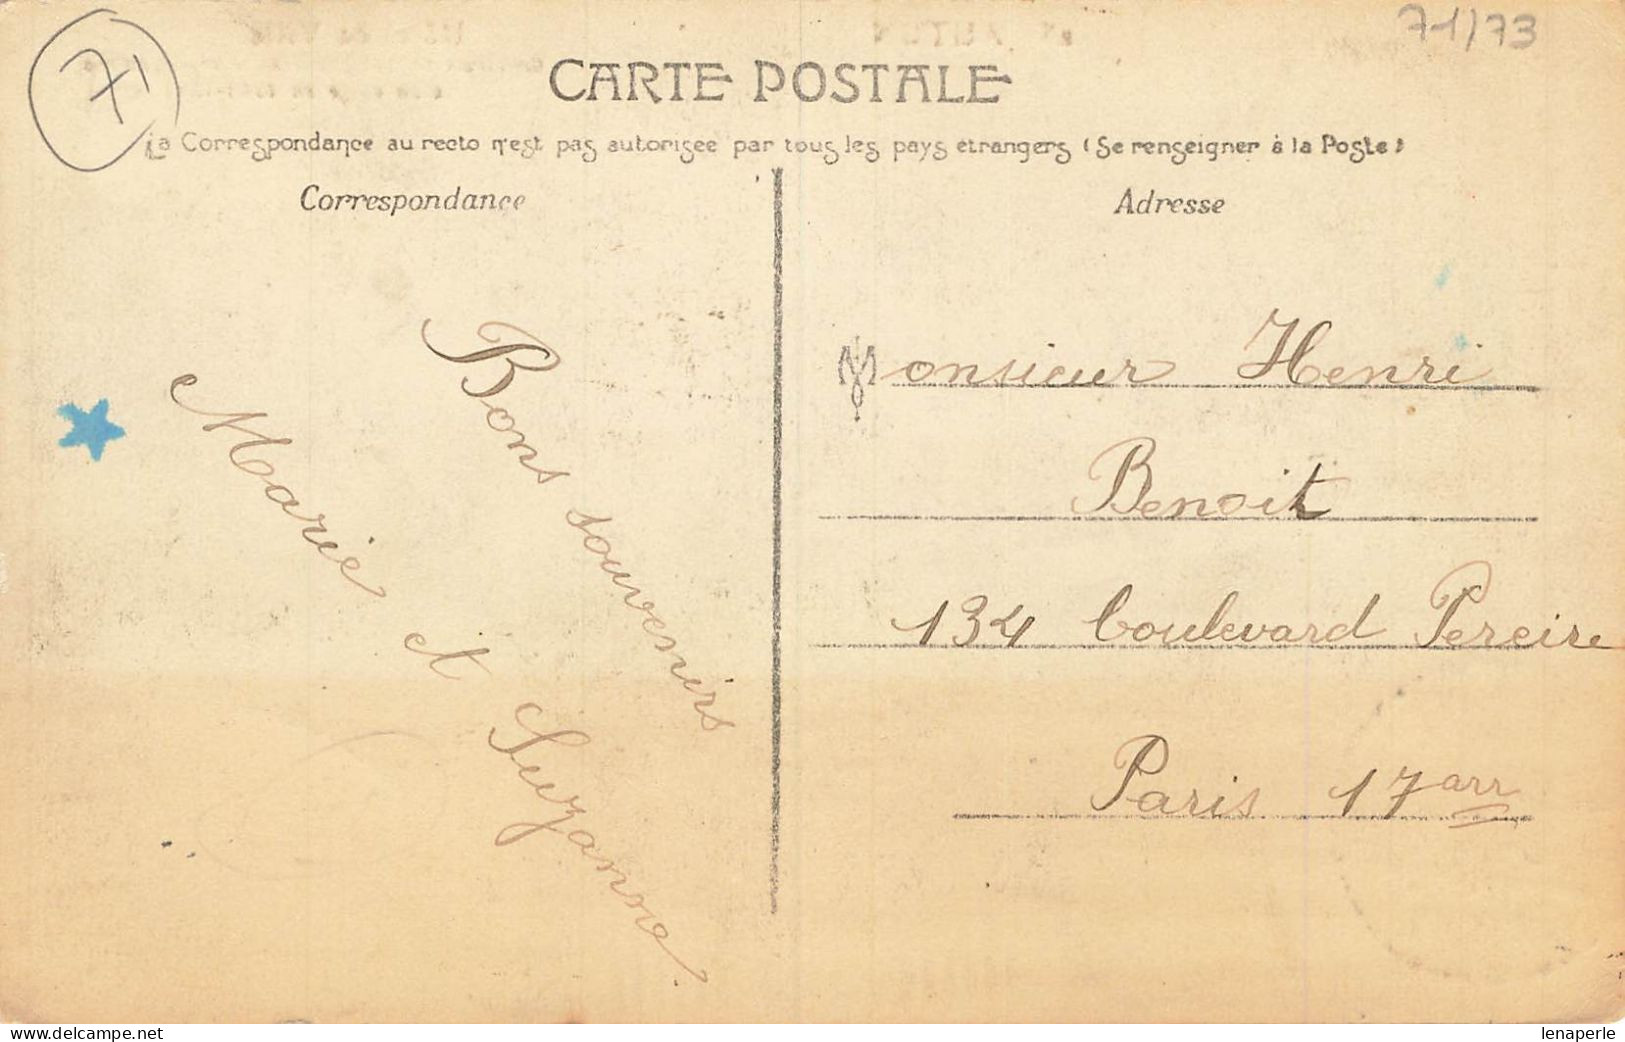 71
71/73
CARTE POSTALE
La Correspondance au recto n'est pas autorisée par tous les pays étrangers (Se renseigner à la Poste)
Correspondance
Adresse
Bons souvenirs
Marie et Suzanne
Monsieur Henri
Benoit
134 boulevard Pereire
Paris 17arr
www.delcampe.net
lenaperle